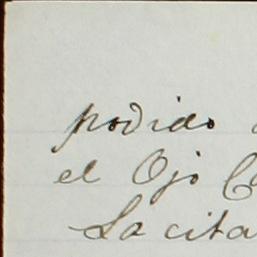 podido
el Ojo C
La cita